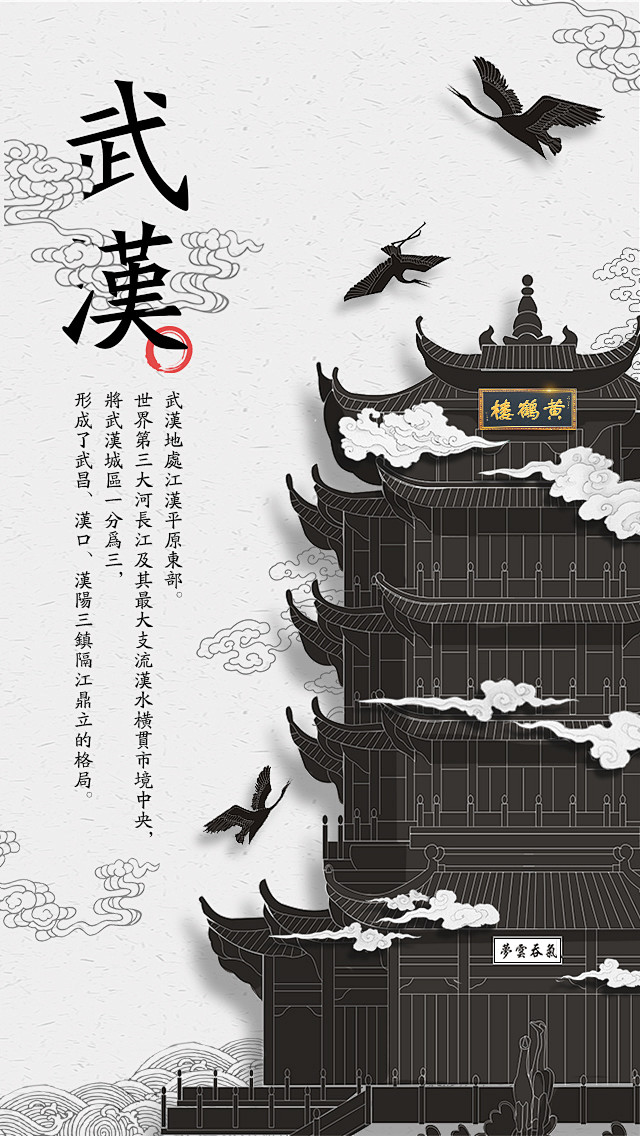 武漢
武漢地處江漢平原東部。
世界第三大河長江及其最大支流漢水橫貫市境中央，
將武漢城區一分爲三，
形成了武昌、漢口、漢陽三鎮隔江鼎立的格局。
黃鶴樓
氣吞雲夢